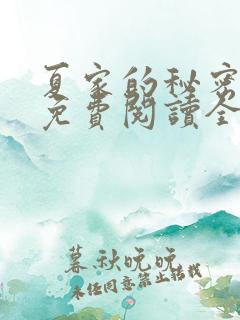 夏家的秘密
免費閱讀全
暮秋晚晚
未经同意禁止转载